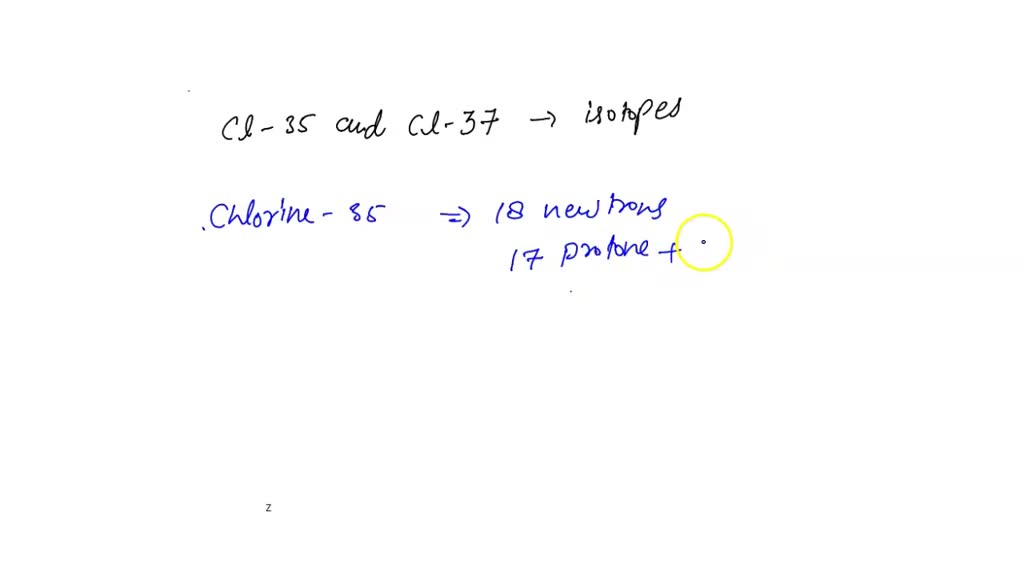 Cl - 35 and Cl - 37 → isotopes
Chlorine - 35 ⇒ 18 newtrons
17 protone +
z